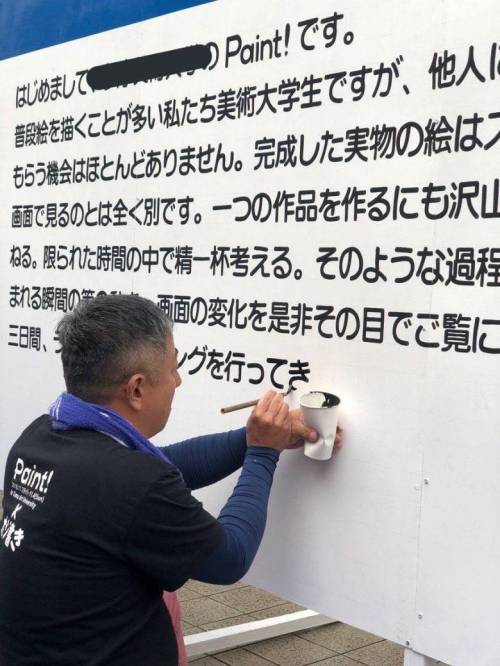 はじめまして の Paint! です。
普段絵を描くことが多い私たち美術大学生ですが、他人に
もらう機会はほとんどありません。完成した実物の絵はス
画面で見るのとは全く別です。一つの作品を作るにも沢山
ねる。限られた時間の中で精一杯考える。そのような過程
まれる瞬間の筆の 画面の変化を是非その目でご覧に
三日間、 ングを行ってき
Paint!
×